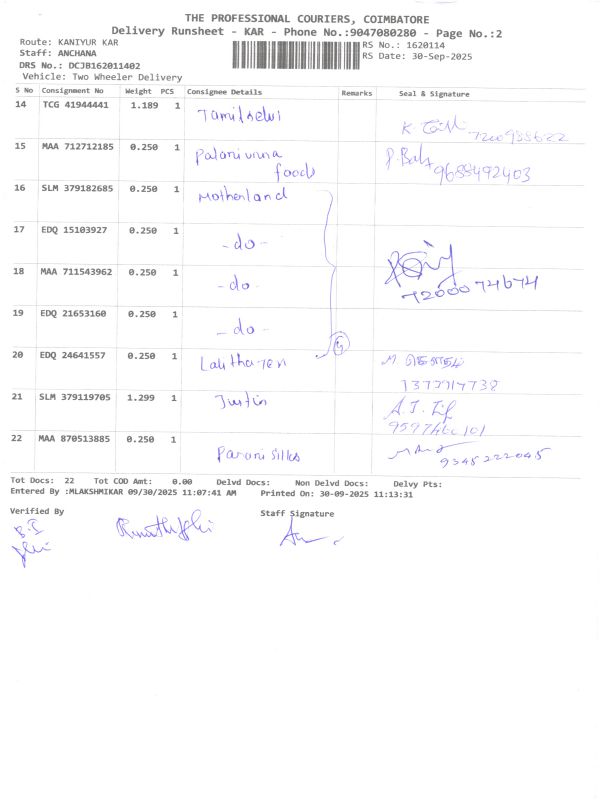 THE PROFESSIONAL COURIERS, COIMBATORE
Delivery Runsheet - KAR - Phone No.:9047080280 - Page No.:2
Route: KANIYUR KAR
RS No.: 1620114
Staff: ANCHANA
RS Date: 30-Sep-2025
DRS No.: DCJB162011402
Vehicle: Two Wheeler Delivery
S No Consignment No Weight PCS Consignee Details Remarks Seal & Signature
14 TCG 41944441 1.189 1 Tamilselvi
15 MAA 712712185 0.250 1 foods 9688492403
16 SLM 379182685 0.250 1 Motherland
17 EDQ 15103927 0.250 1 -do-
18 MAA 711543962 0.250 1 -do- 7200074674
19 EDQ 21653160 0.250 1 -do-
20 EDQ 24641557 0.250 1
21 SLM 379119705 1.299 1 Justin
22 MAA 870513885 0.250 1 9345222045
Tot Docs: 22 Tot COD Amt: 0.00 Delvd Docs: Non Delvd Docs: Delvy Pts:
Entered By :MLAKSHMIKAR 09/30/2025 11:07:41 AM Printed On: 30-09-2025 11:13:31
Verified By Staff Signature